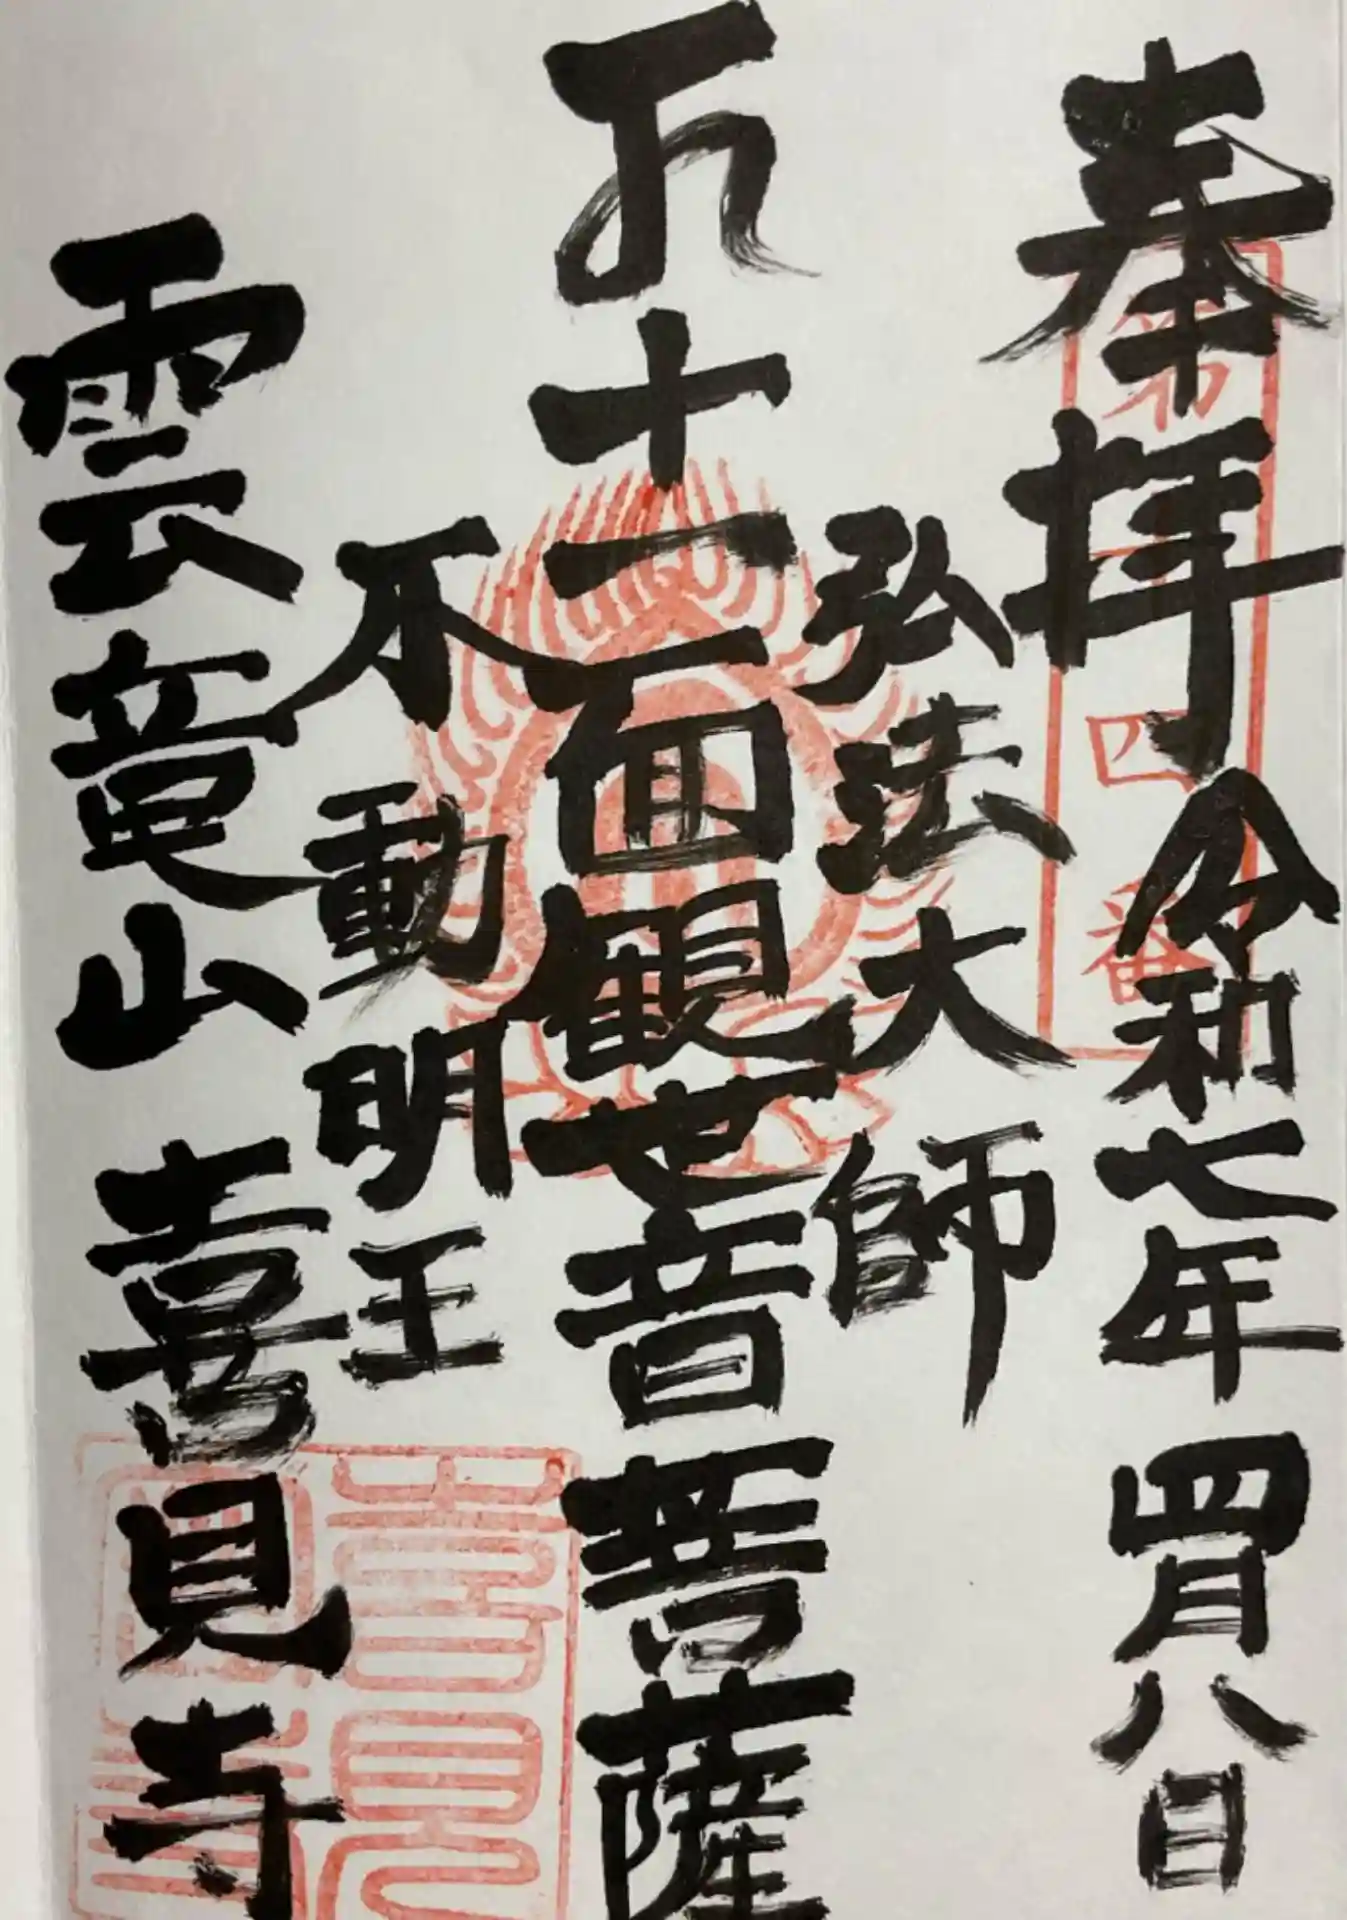 奉拝 令和七年 四月八日
四番
弘法大師
十一面観世音菩薩
不動明王
雲竜山 喜見寺
喜見